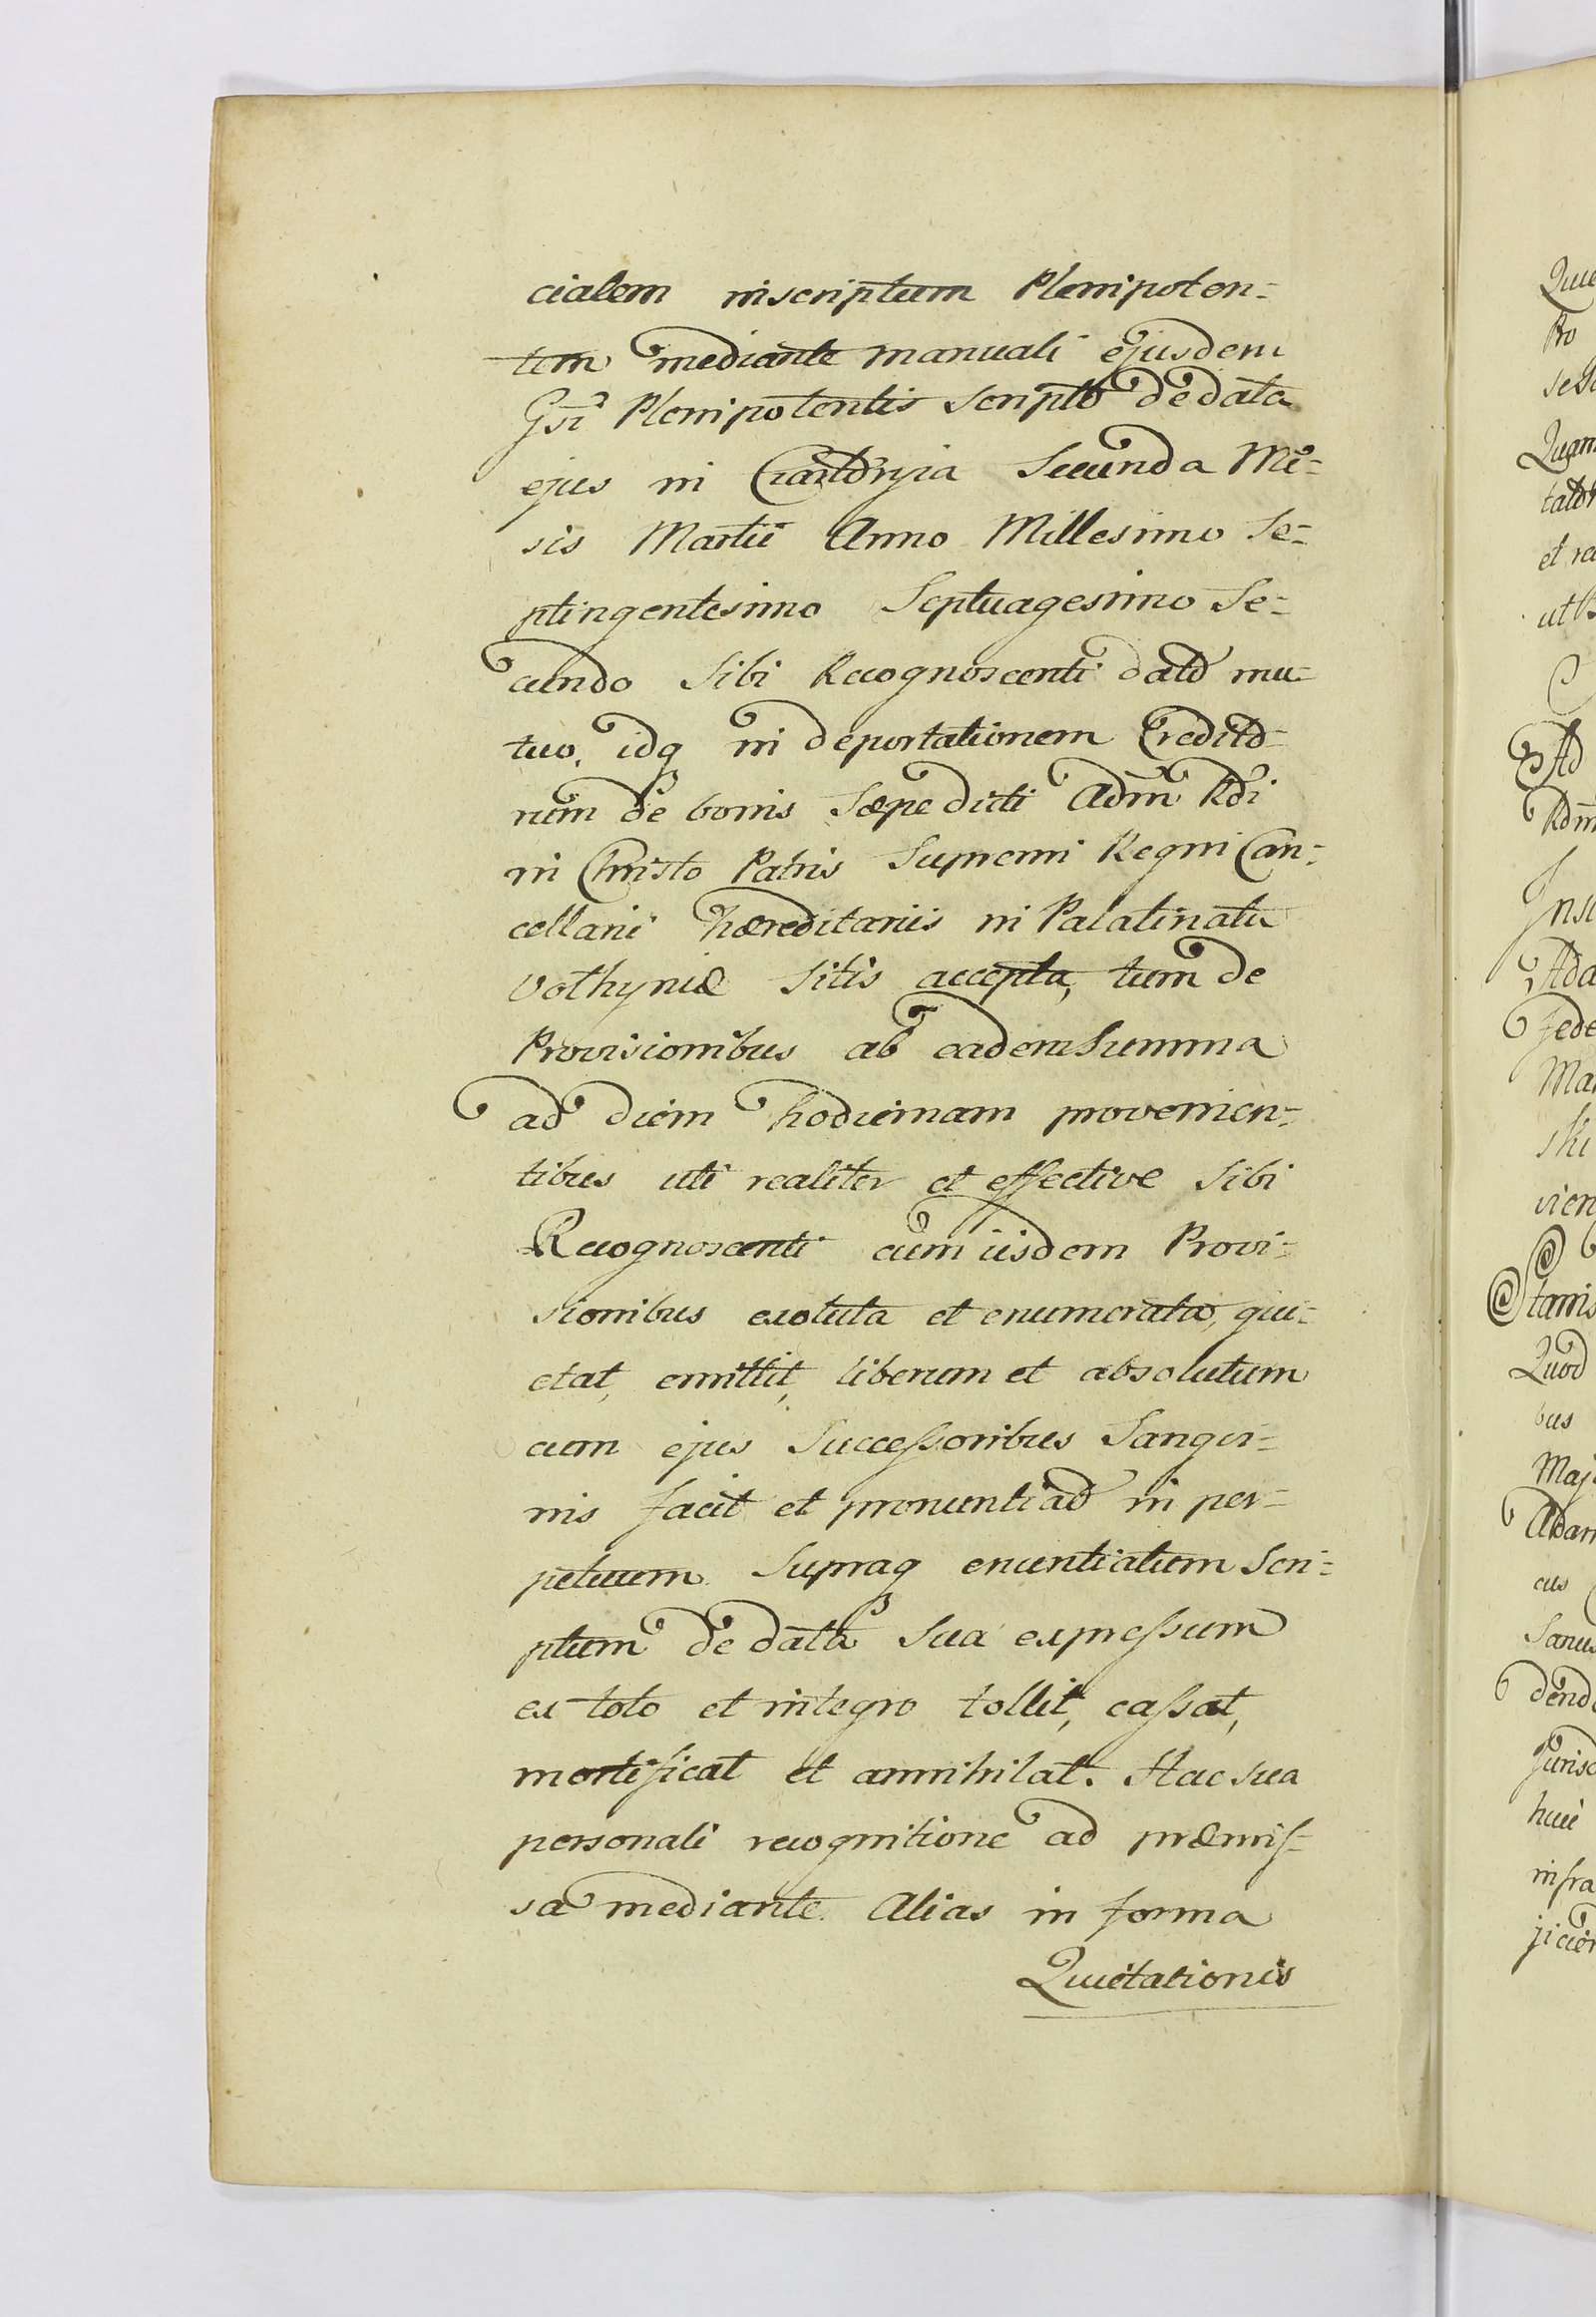 cialem inscriptum Plenipoten=
tem mediante manuali ejusdem
Gsi Plenipotentis scripto de data
ejus in Secunda Mẽ=
sis Martii Anno Millesimo Se=
ptingentesimo Septuagesimo Se=
cundo Sibi Recognoscenti dato mu=
tuo, idq in deportationem Credito=
rum de bonis Sæpe dicti Adm Rdi
in Christo Patris Supremi Regni Can=
cellarii hæreditariis in Palatinatu
Volhyniæ Sitis accepta, tum de
Provisionibus ab eadem Summa
ad diem hodiernam provenien=
tibus uti realiter et effective Sibi
Recognoscenti cum iisdem Provi=
sionibus exoluta et enumerata, qui=
etat, emittit, liberum et absolutum
cum ejus Successoribus Sangvi=
nis facit et pronuntiad in per=
petuum. Supraq enuntiatum Scri=
ptum de data sua expressum
ex toto et integro tollit, cassat,
mortificat et annihilat. Hac sua
personali recognitione ad præmis=
sa mediante. Alias in forma
Quietationis
Quie
Pro
et re
Ad
Rdm
Ada
Mar
ski
vien
Quod
bus
Maj
Adam
cus
huic
infra